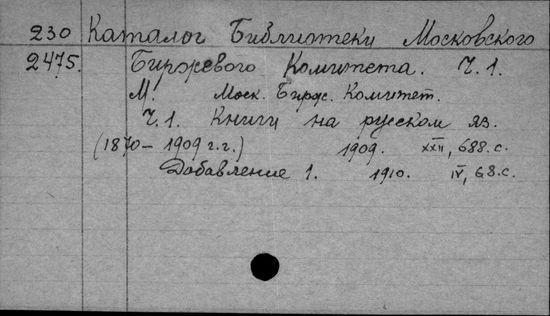 230 Каталог Библиотеки Московского
2475. Биржевого Комитета. Ч.1.
М. Моск. Бирж. Комитет.
Ч.1. Книги на русском яз.
(1870–1909 г.г.) 1909. XXII, 688.с.
Добавление 1. 1910. IV, 68.с.